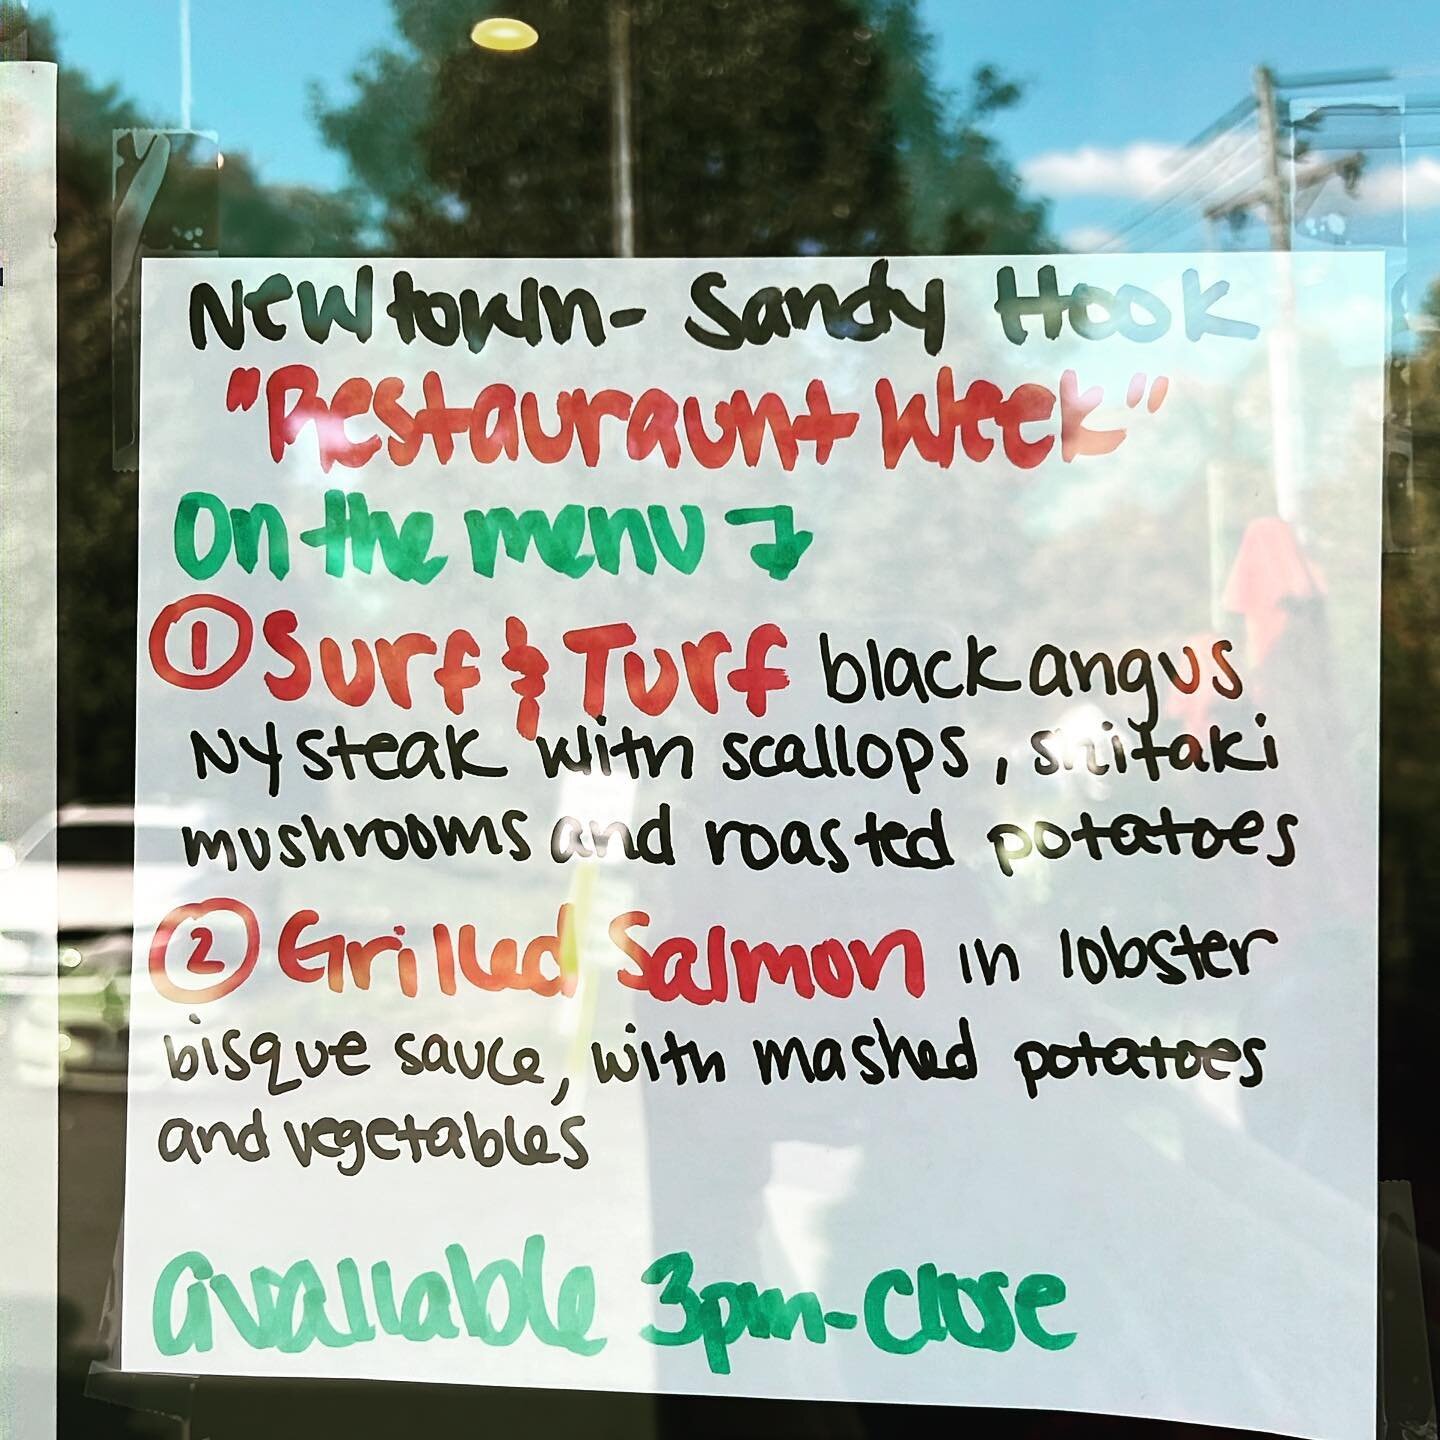 Newtown- Sandy Hook
"Restauraunt Week"
On the menu
① Surf & Turf black angus
NY steak with scallops, shitaki
mushrooms and roasted potatoes
② Grilled Salmon in lobster
bisque sauce, with mashed potatoes
and vegetables
available 3pm-close